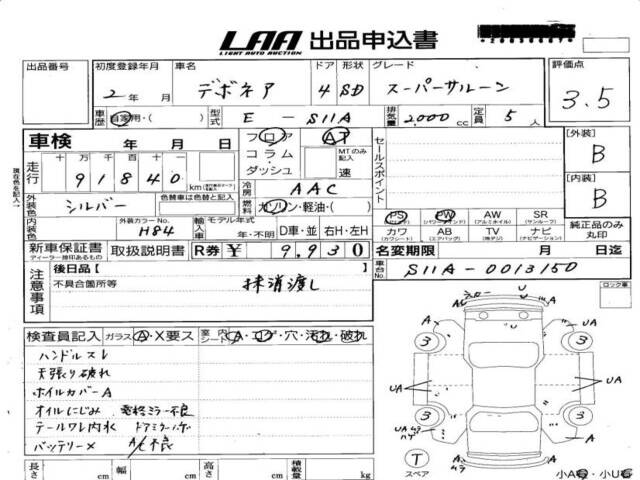 LAA 出品申込書
LIGHT AUTO AUCTION
出品番号 初度登録年月 車名 ドア 形状 グレード 評価点
2 年 月 デボネア 4 SD スーパーサルーン 3.5
車歴 自家用・( ) 型式 E - S11A 排気量 2000 cc 定員 5 人
車検 年 月 日 フロア AT セールスポイント [外装]
コラム MTのみ記入 B
走行 十 万 千 百 十 一 ダッシュ 速
9 1 8 4 0 km [内装]
現在色を記入→ 冷房 AAC B
外装色 シルバー 色替車は色替と記入 燃料 ガソリン・軽油・( )
PS PW AW SR
(パワステ) (パワーウィンドウ) (アルミホイル) (サンルーフ)
内装色 外装カラーNo. H84 輸入車 モデル年式 年・不明 D車・並 右H・左H
カワ AB TV ナビ 純正品のみ丸印
(カワシート) (エアバッグ) (テレビ) (ナビゲーション)
新車保証書 取扱説明書 R券 ¥ 9,930 名変期限 月 日迄
ディーラー捺印あるもの
車台No. S11A-0013150
注意事項 後日品 [ ]
不具合箇所等 抹消渡し
ロック車
検査員記入 ガラス A・X要ス 室内シート A・コゲ・穴・汚れ・破れ
ハンドルスレ
天張り破れ
ホイルカバーA
オイルにじみ 電格ミラー不良
テールワレ内水 ドアミラーハゲ
バッテリーX A/C不良
A U A
3 3 UA
UA UA
UA 3 3 A
ハゲ
T スペア A
小A有・小U有
長さ cm 幅 cm 高さ cm 積載量 kg